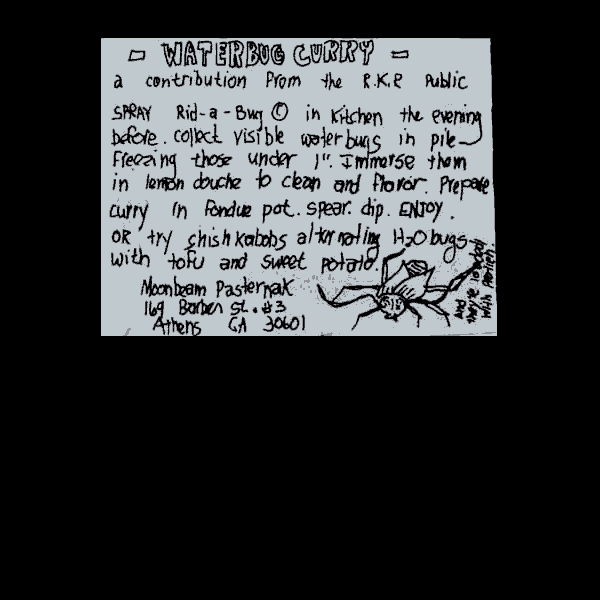 - WATERBUG CURRY -
a contribution from the R.K.P. Public
SPRAY Rid-a-Bug © in kitchen the evening
before. collect visible waterbugs in pile
Freezing those under 1". Immerse them
in lemon douche to clean and flavor. Prepare
curry in fondue pot. spear. dip. ENJOY.
OR try shish kabobs alternating H2O bugs
with tofu and sweet potato.
and they're loaded with protien!
Moonbeam Pasternak
169 Barber St. #3
Athens GA 30601